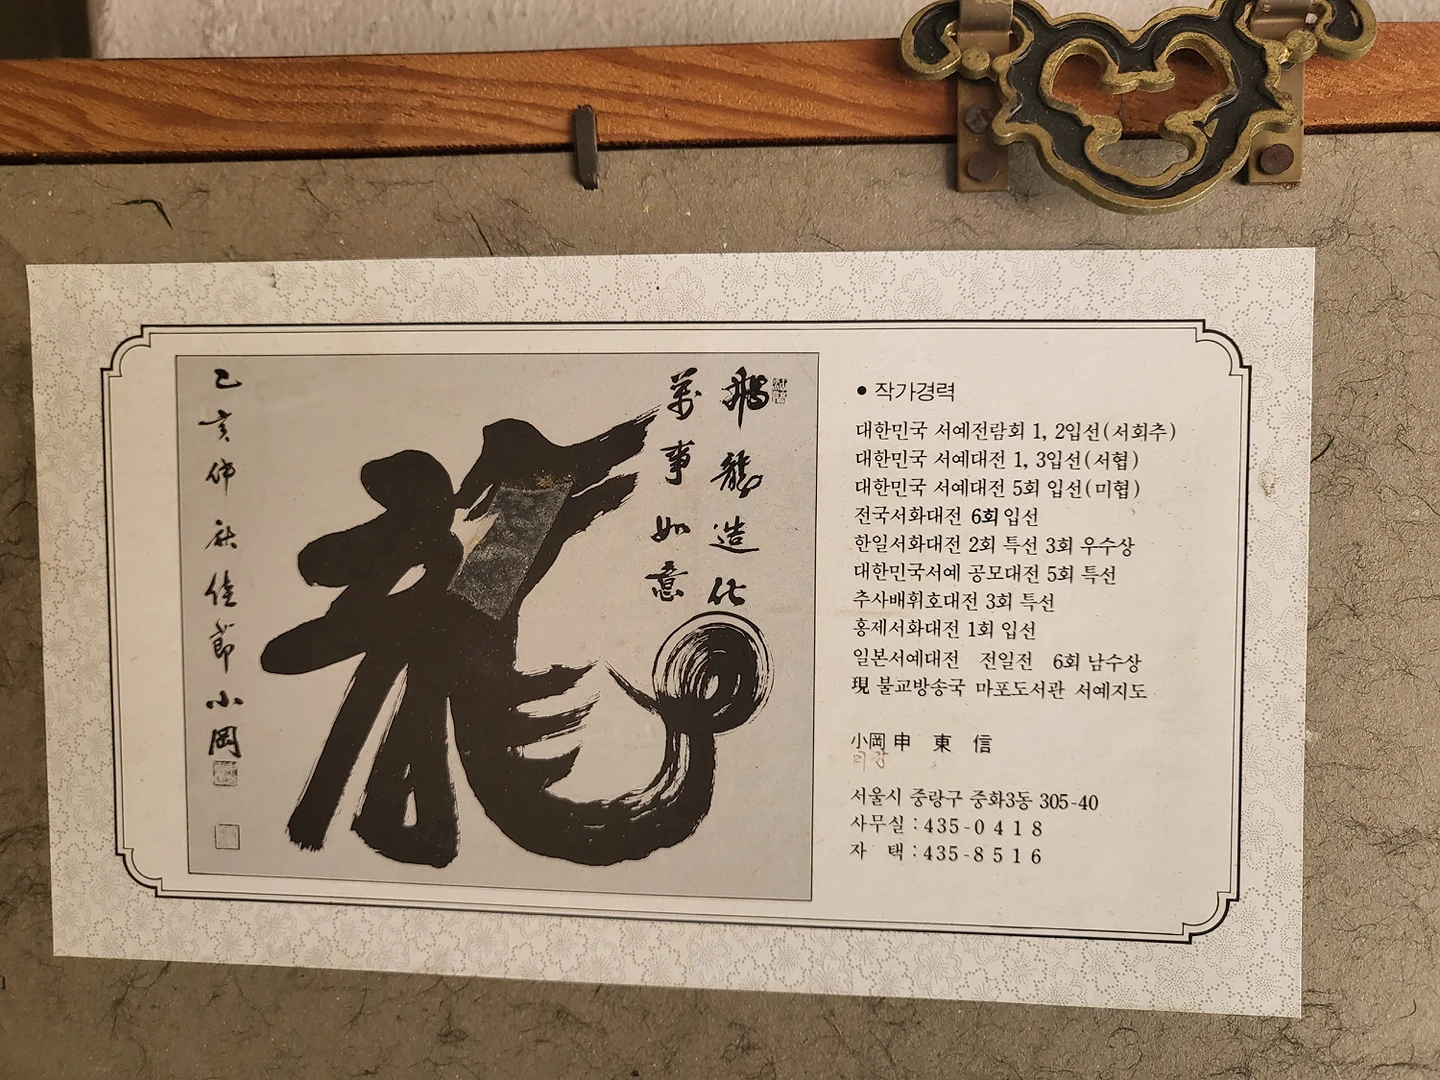 飛龍造化
萬事如意
龍
乙亥仲秋佳節 小岡
● 작가경력
대한민국 서예전람회 1, 2입선(서회추)
대한민국 서예대전 1, 3입선(서협)
대한민국 서예대전 5회 입선(미협)
전국서화대전 6회 입선
한일서화대전 2회 특선 3회 우수상
대한민국서예 공모대전 5회 특선
추사배휘호대전 3회 특선
홍제서화대전 1회 입선
일본서예대전 전일전 6회 남수상
現 불교방송국 마포도서관 서예지도
小岡 申 東 信
서울시 중랑구 중화3동 305-40
사무실 : 435-0418
자 택 : 435-8516